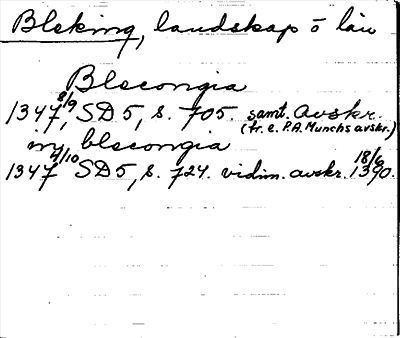 Bleking, landskap o län
Blecongia
1347 8/9, SD 5, s. 705. samt. avskr.
(tr. e. P.A. Munchs avskr.)
in blecongia
1347 4/10 SD 5, s. 724. vidim. avskr. 18/6 1390.